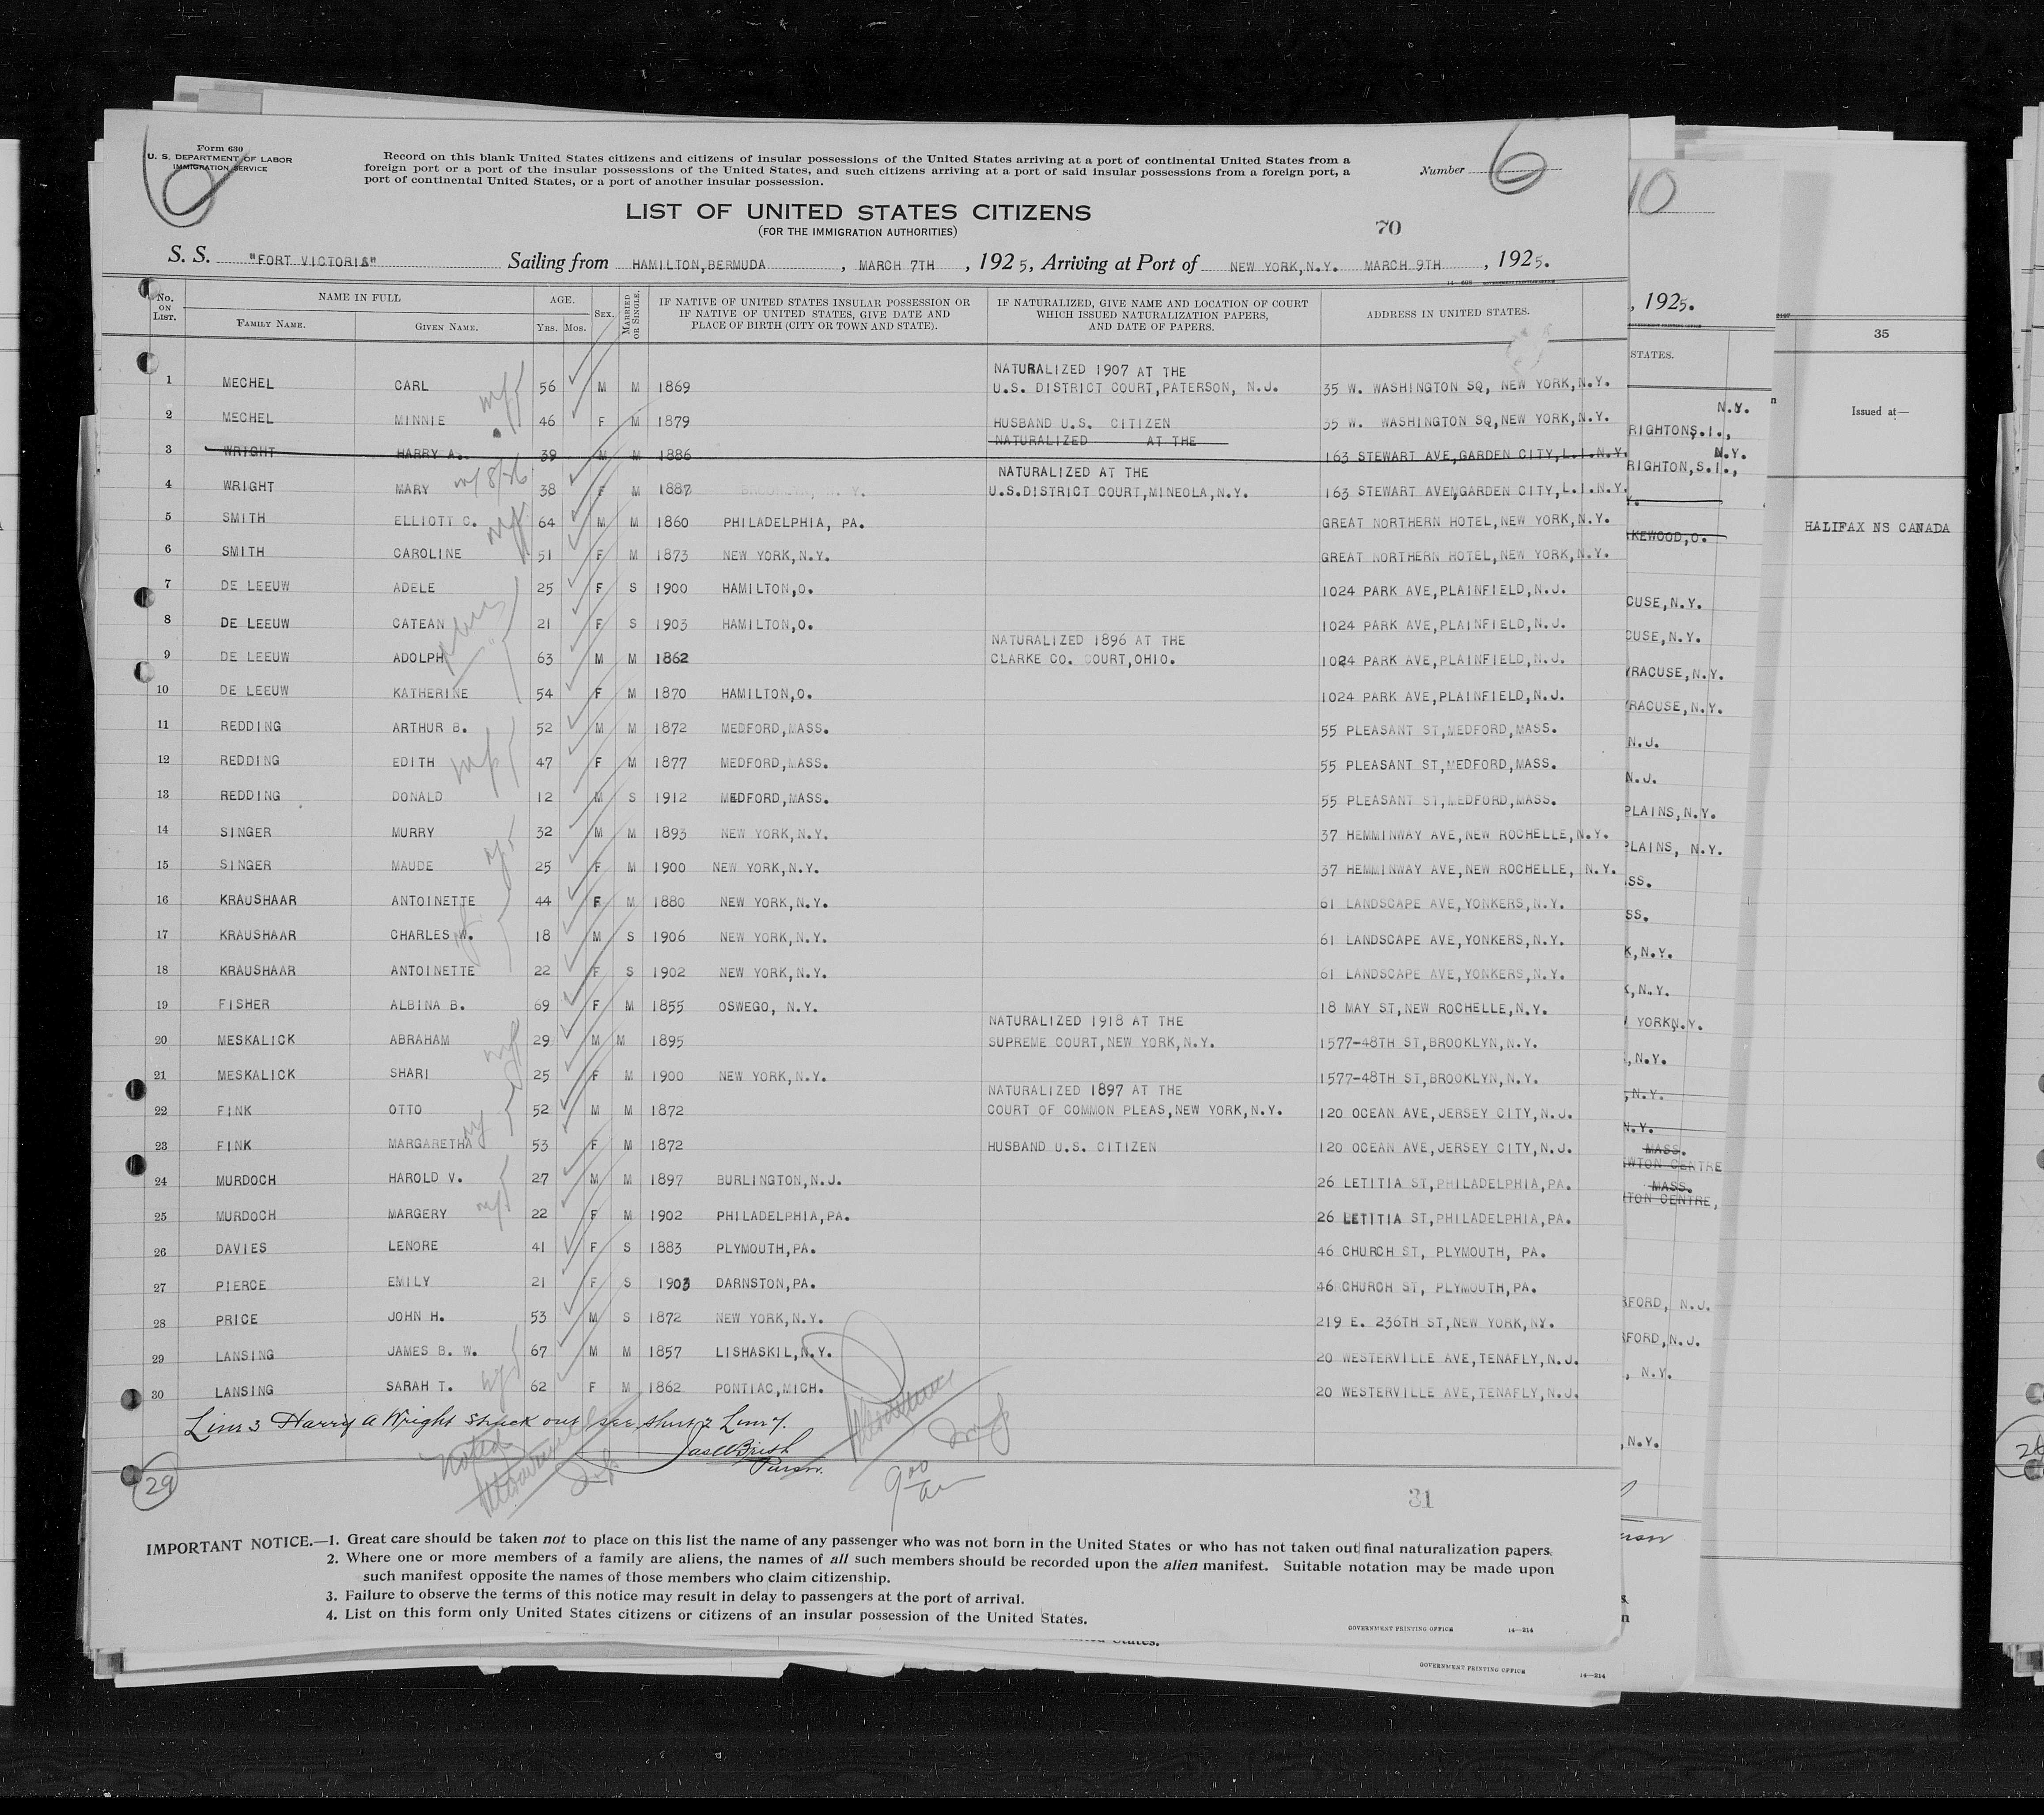 Form 630
U. S. DEPARTMENT OF LABOR
IMMIGRATION SERVICE
Record on this blank United States citizens and citizens of insular possessions of the United States arriving at a port of continental United States from a
foreign port or a port of the insular possessions of the United States, and such citizens arriving at a port of said insular possessions from a foreign port, a
port of continental United States, or a port of another insular possession.
Number 6
6
LIST OF UNITED STATES CITIZENS
(FOR THE IMMIGRATION AUTHORITIES)
70
S. S. "FORT VICTORIA" Sailing from HAMILTON,BERMUDA , MARCH 7TH , 1925, Arriving at Port of NEW YORK,N.Y. MARCH 9TH , 1925.
No. ON LIST. NAME IN FULL AGE. SEX. MARRIED OR SINGLE. IF NATIVE OF UNITED STATES INSULAR POSSESSION OR IF NATIVE OF UNITED STATES, GIVE DATE AND PLACE OF BIRTH (CITY OR TOWN AND STATE). IF NATURALIZED, GIVE NAME AND LOCATION OF COURT WHICH ISSUED NATURALIZATION PAPERS, AND DATE OF PAPERS. ADDRESS IN UNITED STATES.
FAMILY NAME. GIVEN NAME. YRS. MOS.
NATURALIZED 1907 AT THE
1 MECHEL CARL 56 M M 1869 U.S. DISTRICT COURT,PATERSON, N.J. 35 W. WASHINGTON SQ, NEW YORK,N.Y.
2 MECHEL MINNIE 46 F M 1879 HUSBAND U.S. CITIZEN 35 W. WASHINGTON SQ,NEW YORK,N.Y.
NATURALIZED AT THE
3 WRIGHT HARRY A. 39 M M 1886 163 STEWART AVE,GARDEN CITY,L.I.N.Y.
NATURALIZED AT THE
4 WRIGHT MARY 38 F M 1887 U.S.DISTRICT COURT,MINEOLA,N.Y. 163 STEWART AVE,GARDEN CITY,L.I.N.Y.
5 SMITH ELLIOTT C. 64 M M 1860 PHILADELPHIA, PA. GREAT NORTHERN HOTEL,NEW YORK,N.Y.
6 SMITH CAROLINE 51 F M 1873 NEW YORK,N.Y. GREAT NORTHERN HOTEL,NEW YORK,N.Y.
7 DE LEEUW ADELE 25 F S 1900 HAMILTON,O. 1024 PARK AVE,PLAINFIELD,N.J.
8 DE LEEUW CATEAN 21 F S 1903 HAMILTON,O. 1024 PARK AVE,PLAINFIELD,N.J.
NATURALIZED 1896 AT THE
9 DE LEEUW ADOLPH 63 M M 1862 CLARKE CO. COURT,OHIO. 1024 PARK AVE,PLAINFIELD,N.J.
10 DE LEEUW KATHERINE 54 F M 1870 HAMILTON,O. 1024 PARK AVE,PLAINFIELD,N.J.
11 REDDING ARTHUR B. 52 M M 1872 MEDFORD,MASS. 55 PLEASANT ST,MEDFORD,MASS.
12 REDDING EDITH 47 F M 1877 MEDFORD,MASS. 55 PLEASANT ST,MEDFORD,MASS.
13 REDDING DONALD 12 M S 1912 MEDFORD,MASS. 55 PLEASANT ST,MEDFORD,MASS.
14 SINGER MURRY 32 M M 1893 NEW YORK,N.Y. 37 HEMMINWAY AVE,NEW ROCHELLE,N.Y.
15 SINGER MAUDE 25 F M 1900 NEW YORK,N.Y. 37 HEMMINWAY AVE,NEW ROCHELLE, N.Y.
16 KRAUSHAAR ANTOINETTE 44 F M 1880 NEW YORK,N.Y. 61 LANDSCAPE AVE,YONKERS,N.Y.
17 KRAUSHAAR CHARLES W. 18 M S 1906 NEW YORK,N.Y. 61 LANDSCAPE AVE,YONKERS,N.Y.
18 KRAUSHAAR ANTOINETTE 22 F S 1902 NEW YORK,N.Y. 61 LANDSCAPE AVE,YONKERS,N.Y.
19 FISHER ALBINA B. 69 F M 1855 OSWEGO, N.Y. 18 MAY ST,NEW ROCHELLE,N.Y.
NATURALIZED 1918 AT THE
20 MESKALICK ABRAHAM 29 M M 1895 SUPREME COURT,NEW YORK,N.Y. 1577-48TH ST,BROOKLYN,N.Y.
21 MESKALICK SHARI 25 F M 1900 NEW YORK,N.Y. 1577-48TH ST,BROOKLYN,N.Y.
NATURALIZED 1897 AT THE
22 FINK OTTO 52 M M 1872 COURT OF COMMON PLEAS,NEW YORK,N.Y. 120 OCEAN AVE,JERSEY CITY,N.J.
23 FINK MARGARETHA 53 F M 1872 HUSBAND U.S. CITIZEN 120 OCEAN AVE,JERSEY CITY,N.J.
24 MURDOCH HAROLD V. 27 M M 1897 BURLINGTON,N.J. 26 LETITIA ST,PHILADELPHIA,PA.
25 MURDOCH MARGERY 22 F M 1902 PHILADELPHIA,PA. 26 LETITIA ST,PHILADELPHIA,PA.
26 DAVIES LENORE 41 F S 1883 PLYMOUTH,PA. 46 CHURCH ST, PLYMOUTH, PA.
27 PIERCE EMILY 21 F S 1903 DARNSTON,PA. 46 CHURCH ST, PLYMOUTH,PA.
28 PRICE JOHN H. 53 M S 1872 NEW YORK,N.Y. 219 E. 236TH ST,NEW YORK,NY.
29 LANSING JAMES B. W. 67 M M 1857 LISHASKIL,N.Y. 20 WESTERVILLE AVE,TENAFLY,N.J.
30 LANSING SARAH T. 62 F M 1862 PONTIAC,MICH. 20 WESTERVILLE AVE,TENAFLY,N.J.
Line 3 Harry A Wright struck out see sheet 2 Line 7.
Purser.
Noted
29
9 00 am
31
IMPORTANT NOTICE.—1. Great care should be taken not to place on this list the name of any passenger who was not born in the United States or who has not taken out final naturalization papers.
2. Where one or more members of a family are aliens, the names of all such members should be recorded upon the alien manifest. Suitable notation may be made upon
such manifest opposite the names of those members who claim citizenship.
3. Failure to observe the terms of this notice may result in delay to passengers at the port of arrival.
4. List on this form only United States citizens or citizens of an insular possession of the United States.
GOVERNMENT PRINTING OFFICE 14—214
GOVERNMENT PRINTING OFFICE 14—214
10
, 1925.
STATES.
N.Y.
RIGHTON,S.I.,
N.Y.
RIGHTON,S.I.,
KEWOOD,O.
CUSE,N.Y.
CUSE,N.Y.
YRACUSE,N.Y.
YRACUSE,N.Y.
N.J.
N.J.
PLAINS,N.Y.
PLAINS, N.Y.
SS.
SS.
K,N.Y.
K,N.Y.
YORK,N.Y.
,N.Y.
,N.Y.
N.Y.
MASS.
EWTON CENTRE
MASS.
TON CENTRE,
RFORD, N.J.
RFORD,N.J.
, N.Y.
,N.Y.
35
Issued at—
HALIFAX NS CANADA